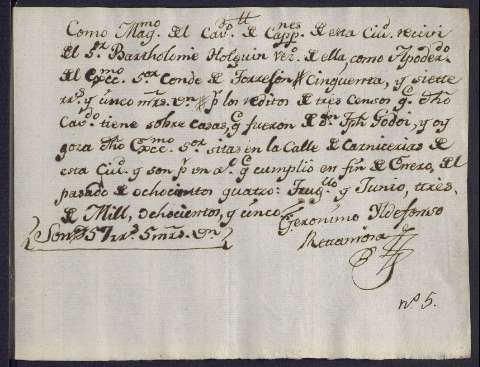 Como Mag.mo del Cav.do de Capp.nes de esta Ciu.d recivi
del S.or Bartholome Holguin Vez.o de ella, como Apoder.do
del Exc.mo S.or Conde de Torrefon Cinquenta, y siette
rr.s y cinco mrs. vn p.r los reditos de tres censos q.e dho
Cav.do tiene sobre casas, q.e fueron de D.n Jph Godoi, y oy
goza dho Exc.mo S.or sitas en la Calle de Carnicerias de
esta Ciu.d y son p.r un a.o q.e cumplio en fin de Enero, del
pasado de ochocientos quatro: Trug.llo y Junio, tres,
de Mill, ochocientos, y cinco
Geronimo Ildefonso
Son 57 rr.s 5 mrs. vn
Retamosa
nº 5.